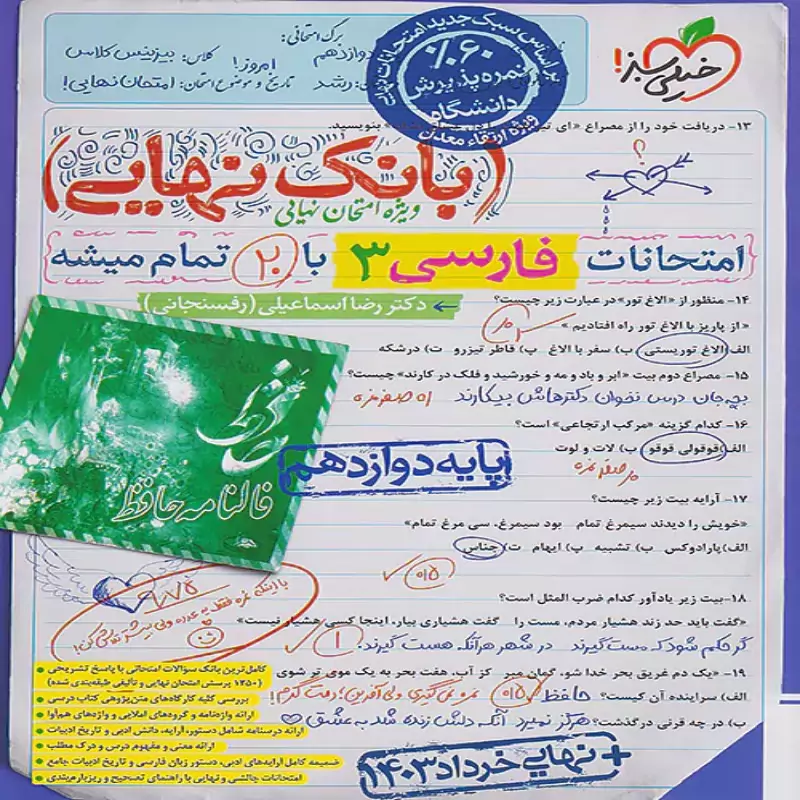 خیلی سبز!
برگ امتحانی:
دوازدهم
کلاس: بیزینس کلاس
امروز!
تاریخ و موضوع امتحان: امتحان نهایی!
رشد
براساس سبک جدید امتحانات نهایی
۶۰٪
نمره پذیرش
دانشگاه
ویژه ارتقاء معدل
۱۳- دریافت خود را از مصراع «ای بنویسید
(بانک نهایی)
ویژه امتحان نهایی
امتحانات فارسی ۳ با ۲۰ تمام میشه
دکتر رضا اسماعیلی (رفسنجانی)
۱۴- منظور از «الاغ تور» در عبارت زیر چیست؟
«از پاریز با الاغ تور راه افتادیم»
الف) الاغ توریستی ب) سفر با الاغ پ) قاطر تیزرو ت) درشکه
۱۵- مصراع دوم بیت «ابر و باد و مه و خورشید و فلک در کارند» چیست؟
بچه جان درس نخوان دکترهاش بیکارند
صفر نمره
۱۶- کدام گزینه «مرکب ارتجاعی» است؟
الف) قوقولی قوقو ب) لات و لوت
صفر نمره
حافظ
فالنامه حافظ
پایه دوازدهم
۱۷- آرایه بیت زیر چیست؟
«خویش را دیدند سیمرغ تمام بود سیمرغ، سی مرغ تمام»
الف) پارادوکس ب) تشبیه پ) ایهام ت) جناس
۰/۵
۱۸- بیت زیر یادآور کدام ضرب المثل است؟
«گفت باید حد زند هشیار مردم، مست را گفت هشیاری بیار، اینجا کسی هشیار نیست»
گر حکم شود که مست گیرند در شهر هر آنکه هست گیرند
۱
۱۹- «یک دم غریق بحر خدا شو، گمان مبر کز آب، هفت بحر به یک موی تر شوی
الف) سراینده آن کیست؟ حافظ
۰/۵
ب) در چه قرنی درگذشت؟ هرگز نمیرد آنکه دلش زنده شد به عشق
کامل‌ترین بانک سوالات امتحانی با پاسخ تشریحی
(۱۲۵۰ پرسش امتحان نهایی و تألیفی طبقه‌بندی شده)
بررسی کلیه کارگاه‌های متن‌پژوهی کتاب درسی
ارائه واژه‌نامه و گروه‌های املایی و واژه‌های هم‌آوا
ارائه درسنامه شامل دستور، آرایه، دانش ادبی و تاریخ ادبیات
ارائه معنی و مفهوم درس و درک مطلب
ضمیمه کامل آرایه‌های ادبی، دستور زبان فارسی و تاریخ ادبیات جامع
امتحانات چالشی و نهایی با راهنمای تصحیح و ریزبارم‌بندی
+ نهایی خرداد ۱۴۰۳